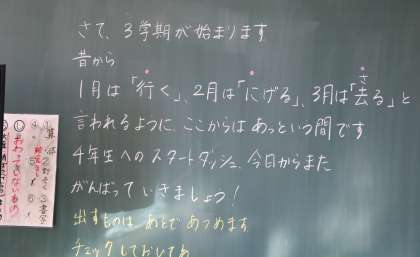 さて、3学期が始まります
昔から
1月は「行く」、2月は「にげる」、3月は「去る」と
さ
言われるように、ここからはあっという間です
4年生へのスタートダッシュ、今日からまた
がんばっていきましょう!
出すものは、あとであつめます
チェックしておいてね